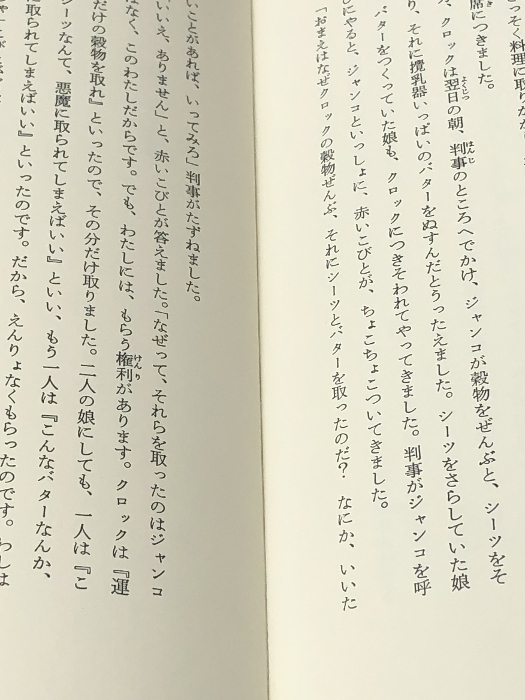 っそく料理に取りかか
席につきました。
クロックは翌日の朝、判事のところへでかけ、ジャンコが穀物をぜんぶと、シーツをそ
り、それに攪乳器いっぱいのバターをぬすんだとうったえました。シーツをさらしていた娘
バターをつくっていた娘も、クロックにつきそわれてやってきました。判事がジャンコを呼
にやると、ジャンコといっしょに、赤いこびとが、ちょこちょこついてきました。
「おまえはなぜクロックの穀物ぜんぶ、それにシーツとバターを取ったのだ？　なにか、いいた
いことがあれば、いってみろ」判事がたずねました。
いいえ、ありません」と、赤いこびとが答えました。「なぜって、それらを取ったのはジャンコ
なく、このわたしだからです。でも、わたしには、もらう権利があります。クロックは『運
だけの穀物を取れ』といったので、その分だけ取りました。二人の娘にしても、一人は『こ
シーツなんて、悪魔に取られてしまえばいい』といい、もう一人は『こんなバターなんか、
に取られてしまえばいい』といったのです。だから、えんりょなくもらったのです。わしは